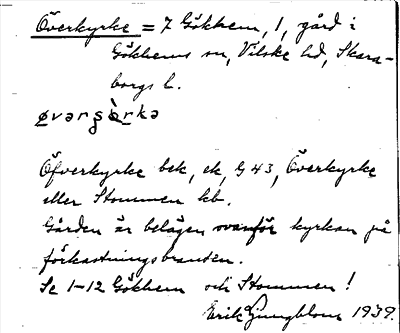 Överkyrke = 7 Gökhem, 1, gård i
Gökhems sn, Vilske hd, Skara-
borgs l.
øvərʂòrkə
Öfverkyrke bek, ek, G 43, Överkyrke
eller Stommen kb.
Gården är belägen ovanför kyrkan på
förkastningsbranden.
Se 1-12 Gökhem och Stommen!
Erik Ljungblom 1939.